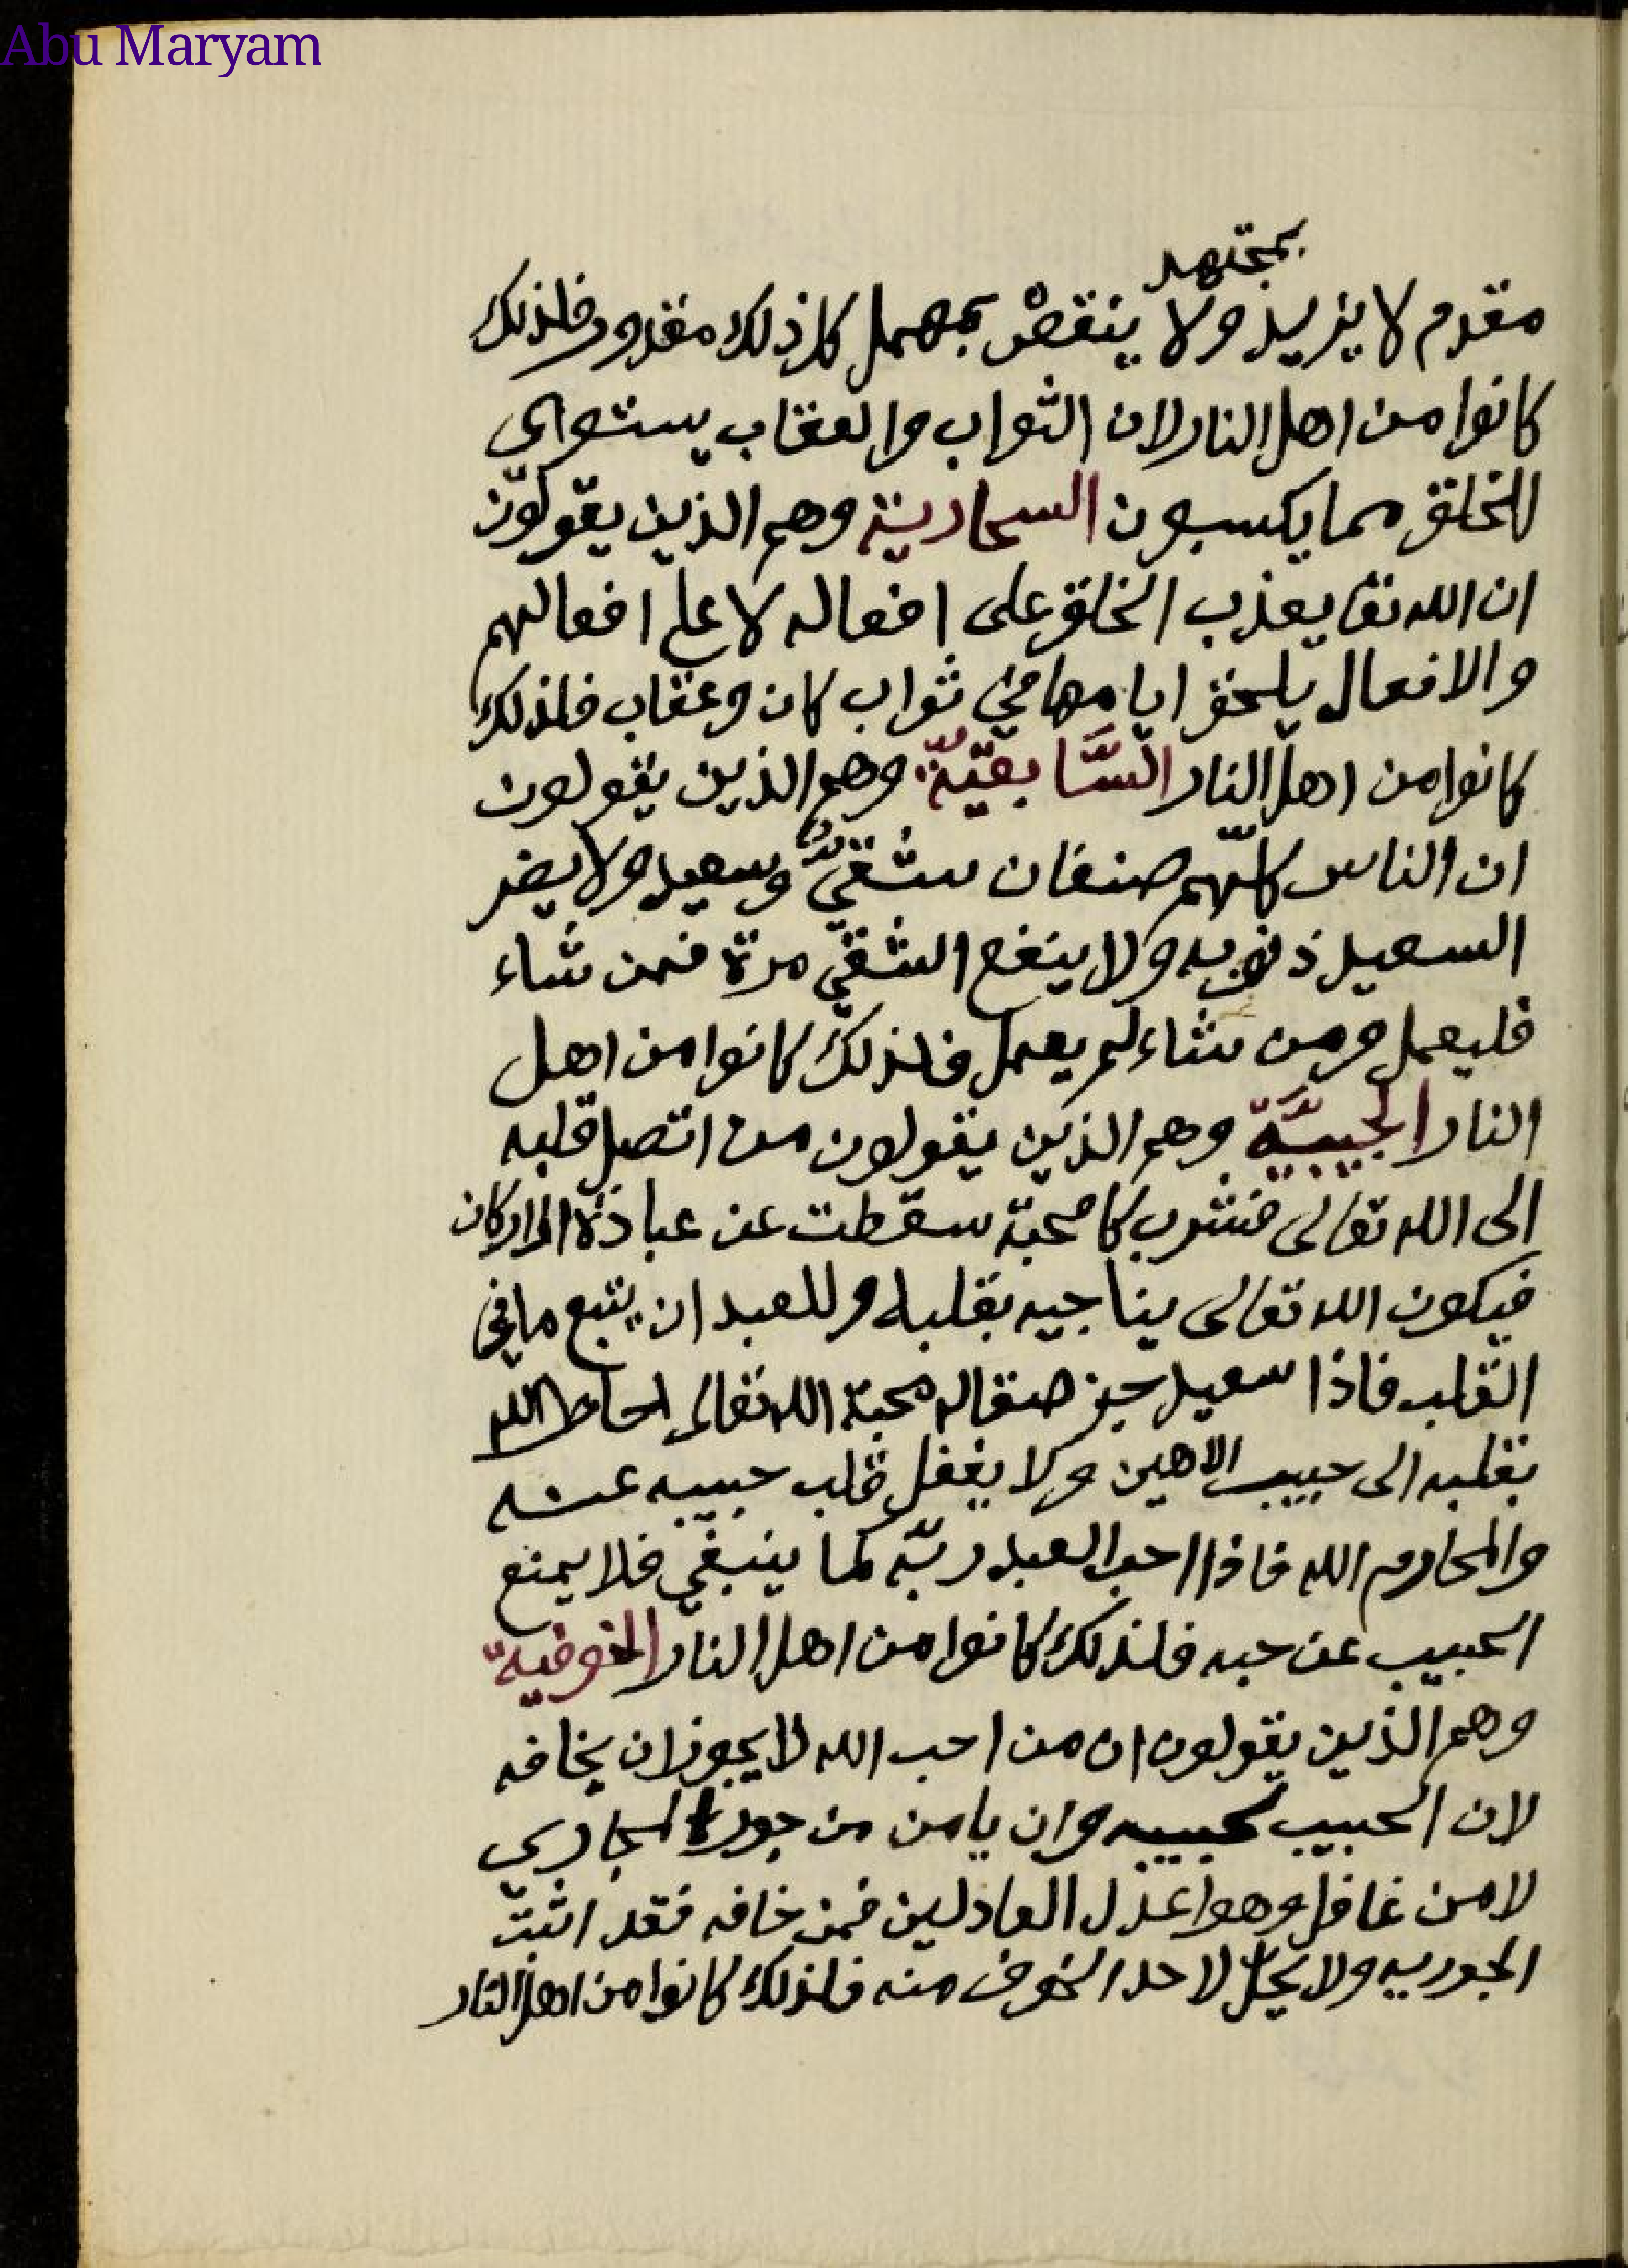 Abu Maryam
بمجتهد
مقدم لا يزيد ولا ينقص بمهمل كل ذلك مقدور فلذلك
كانوا من اهل النار لان الثواب والعقاب يستواى
للخلق مما يكسبون السحارية وهم الذين يقولون
ان الله تعا يعذب الخلق على افعاله لا على افعالهم
والافعال يلحق ايامها في ثواب كان وعقاب فلذلك
كانوا من اهل النار السَّابقيّة وهم الذين يقولون
ان الناس كلّهم صنفان شقيٌّ وسعيد ولا يضر
السعيد ذنوبه ولا ينفع الشقيّ مرة فمن شاء
فليعمل ومن شاء لم يعمل فلذلك كانوا من اهل
النار الحبيبيَّة وهم الذين يقولون من اتصل قلبه
الى الله تعالى فشرب كا محبة سقطت عن عبادة الاركان
فيكون الله تعالى يناجيه بقلبه وللعبد ان يتبع ما في
القلب فاذا سعيد صقاله محبة الله تعالى الله
بقلبه الى حبيب ولا يغفل قلب حبيبه عنه
والمحارم الله فاذا احب العبد ربّه كما ينبغي فلا يمنع
الحبيب عن حبه فلذلك كانوا من اهل النار الخوفيّه
وهم الذين يقولون ان من احب الله لا يجوز ان يخافه
لان الحبيب لحبيبه وان يامن من جور
لا من غافل وهو اعدل العادلين فمن خافه فقد اثبت
الجور به ولا يحلّ لاحد الخوف منه فلذلك كانوا من اهل النار